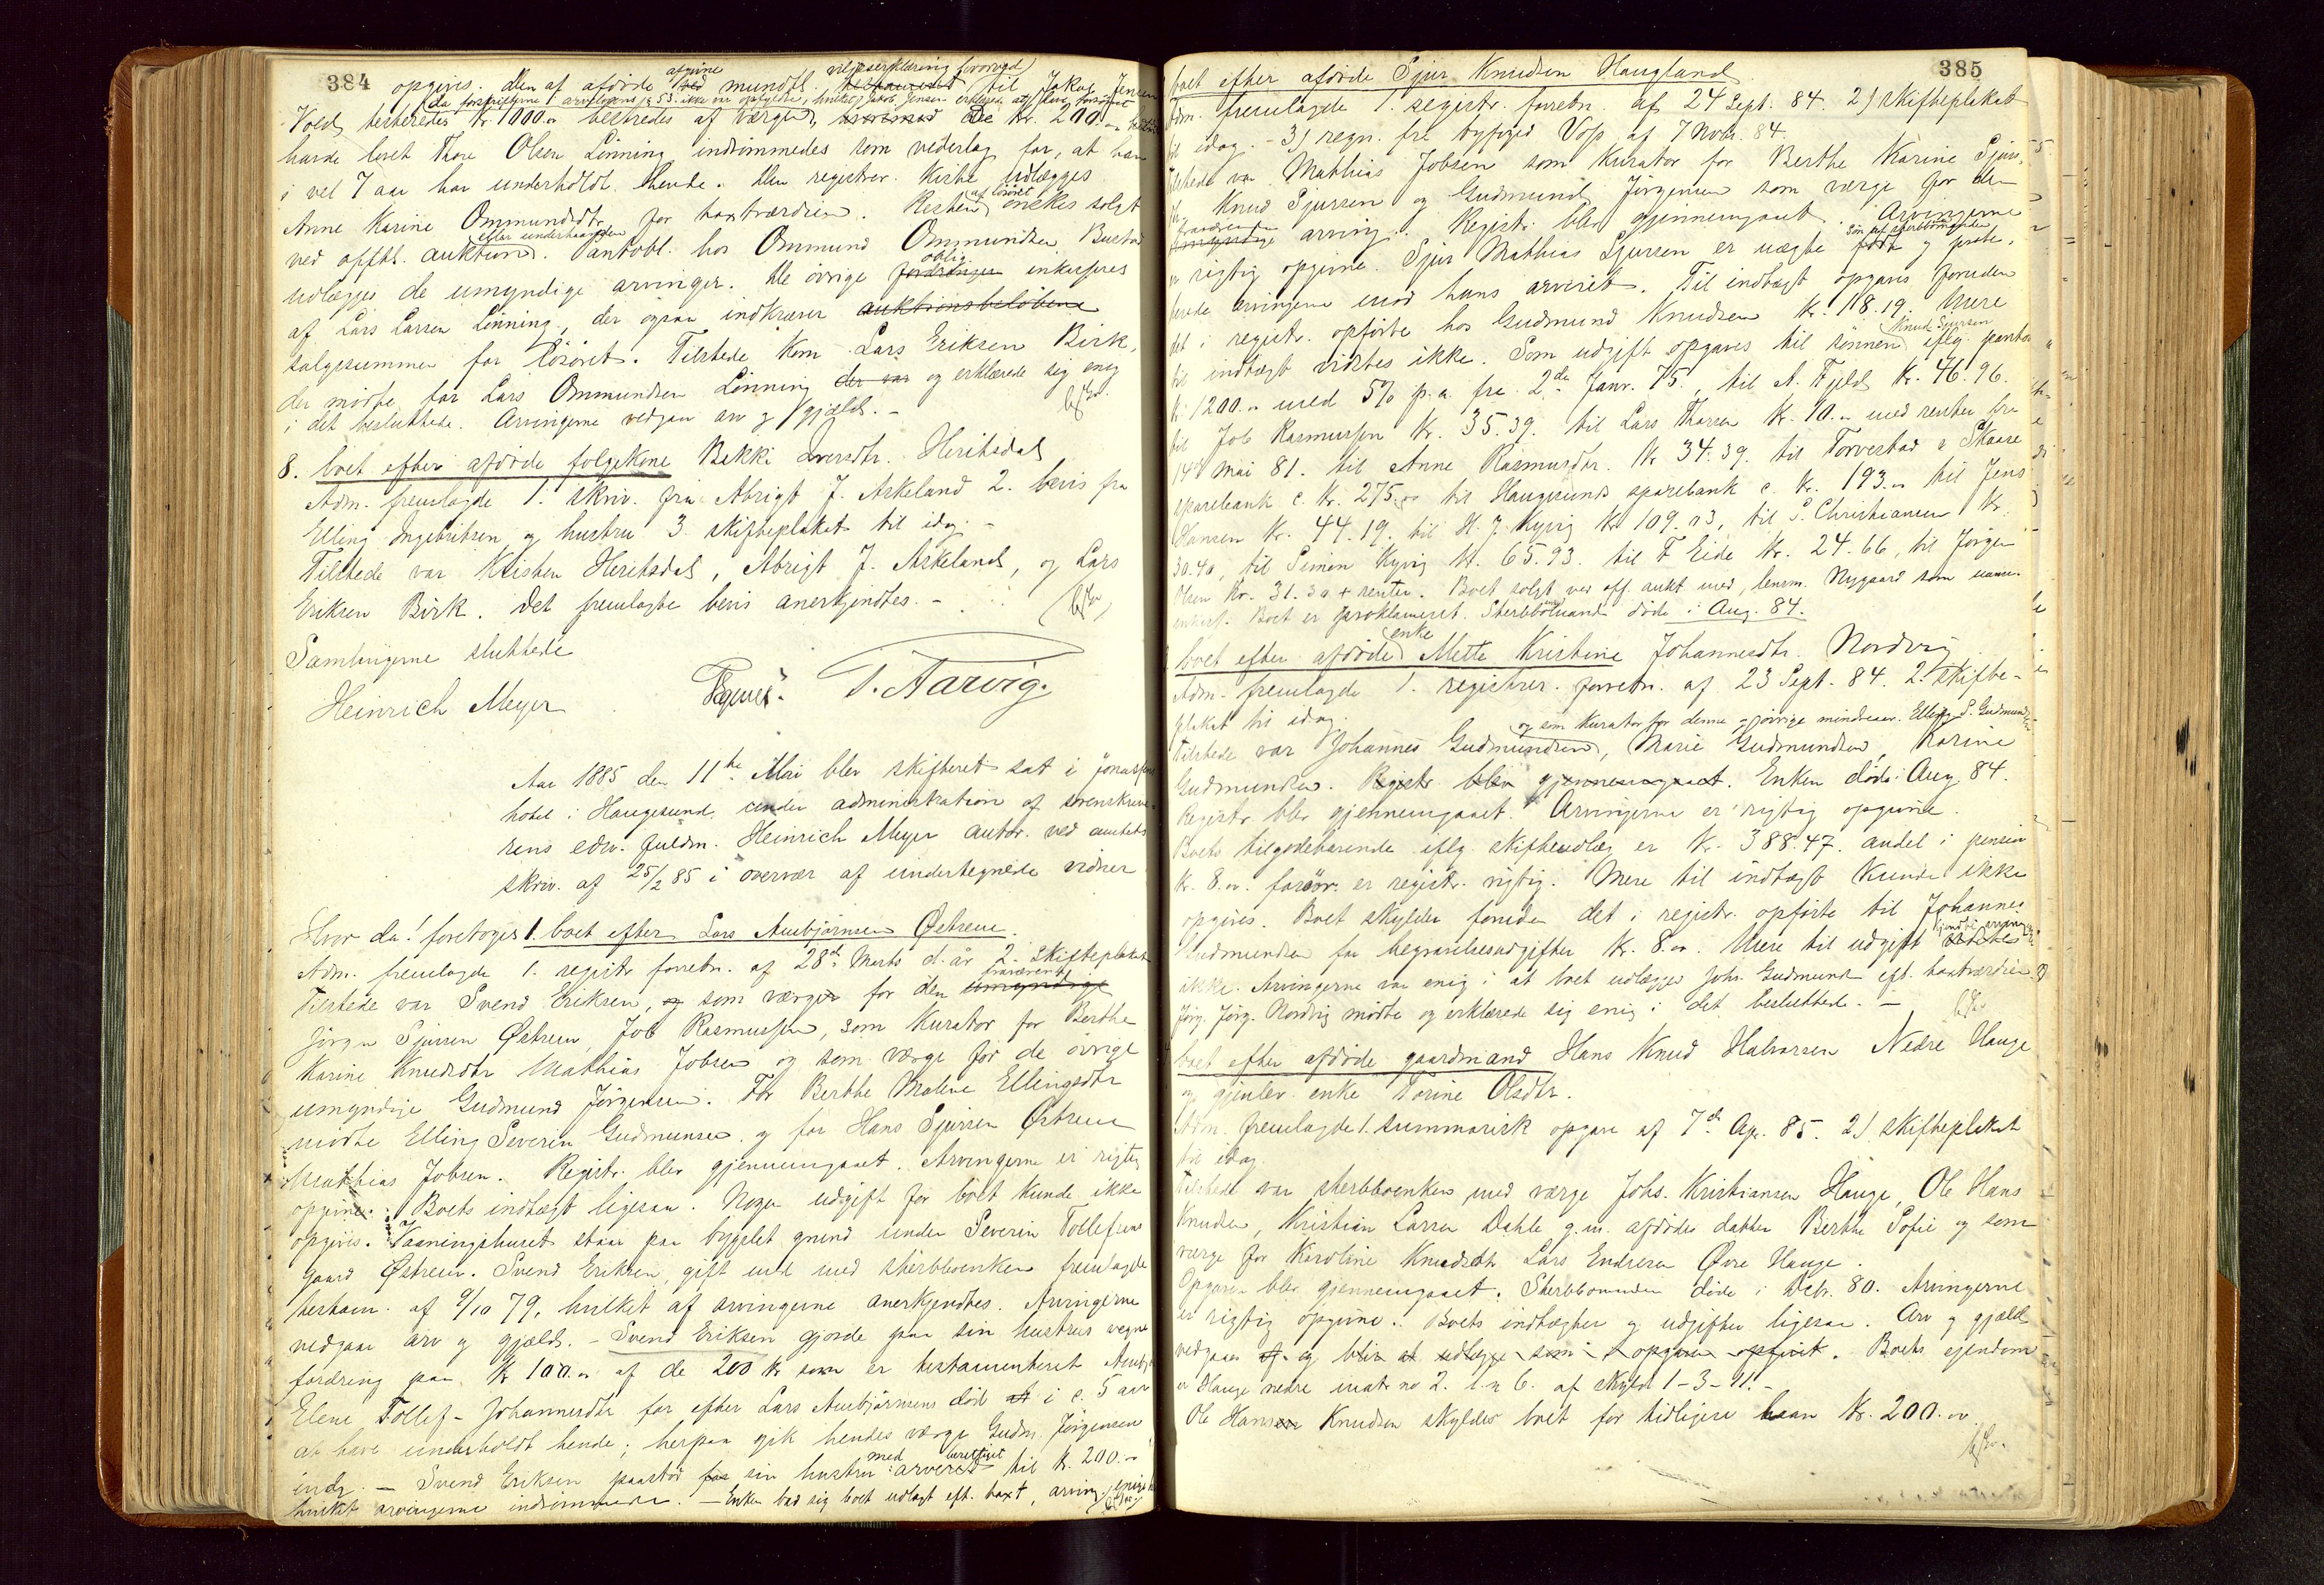 384
afgivne viljeserklæring forövigd
opgives. Den af afdöde ved mundtl. testamentet til Jakob Jensen
(da forskrifterne i arvelovens § 53 ikke var opfyldte, hvilket Jakob Jensen erklærer
Vold, testeredes Kr. 1000.- bestredes af værgen, De Kr. 200.-
havde lovet Thore Olsen Lönning indrömmedes som vederlag for, at han
i vel 7 aar har underholdt hende. Den registrer. Kiste udlægges
Anne Karine Ommundsdtr. for taxtværdien. Resten af lösöret önskes solgt
ved offtl. auktion eller underhaanden. Pantobl. hos Ommund Ommundsen Bustad
udlægges de umyndige arvinger. De övrige fordringer oblig. inkasseres
af Lars Larsen Lönning, der ogsaa indkræver auktionsbelöbene
salgssummen for lösöret. Tilstede kom Lars Eriksen Birk,
der mödte for Lars Ommundsen Lönning der var og erklærede sig enig
i det besluttede. Arvingerne vedgaar arv og gjæld.-
8. boet efter afdöde folgekone Bekki Iversdtr. Heritsdal
Adm. fremlagde 1. skriv. fra Abrigt J. Askeland 2. bevis fra
Elling Ingebritsen og hustru 3. skifteplakat til idag.-
Tilstede var Kristen Heritsdal, Abrigt J. Askeland, og Lars
Eriksen Birk. Det fremlagte bevis anerkjendtes.-
Samlingerne sluttede
Heinrich Meyer T. Aarvig.
Aar 1885 den 11te Mai blev skifteret sat i Jonassens
hotel i Haugesund, under administration af sorenskrive-
rens edsv. fuldm. Heinrich Meyer autor. ved amtets
skriv. af 25/2 85 i overvær af undertegnede vidner
Hvor da! foretoges 1. boet efter Lars Aurbjörnsen Östrem.
Adm. fremlagde 1. registr. forretn. af 28de Marts d. år 2. skifteplakat
Tilstede var Svend Eriksen, og som værge for den umyndige fraværende
Jörgen Sjursen Östrem, Job Rasmussen, som Kurator for Berthe
Karine Knudsdtr Mathias Jobsen og som værge for de övrige
umyndige Gudmund Jörgensen. For Berthe Malene Ellingsdtr
mödte Elling Severin Gudmunsen og for Hans Sjursen Östrem
Matthias Jobsen. Registr. blev gjennemgaaet. Arvingerne er rigtig
opgivne. Boets indtægt ligesaa. Nogen udgift for boet kunde ikke
opgives. Vaaningshuset staar paa bygslet grund under Severin Tollefsens
gaard Östrem. Svend Eriksen, gift med sterbboenken fremlagde
testam. af 9/10 79, hvilket af arvingerne anerkjendtes. Arvingerne
vedgaar arv og gjæld. - Svend Eriksen gjorde paa sin hustrus vegne
fordring paa Kr 100.- af de 200 kr som er testamenteret
Elene Tollef-Johannesdtr for efter Lars Aurbjörnsens död at i c. 5 aar
at have underholdt hende; herpaa gik hendes værge Gudm. Jörgensen
ind. - Svend Eriksen paastod for sin hustru med arveret berettiget til Kr. 200.-
hvilket arvingerne indrömmede. - Enken bad sig boet udlagt eft. taxt, arving. enige
385
boet efter afdöde Sjur Knudsen Haugland
Adm. fremlagde 1. registr. forretn. af 24 Sept. 84. 2) skifteplakat
til idag. - 3) regn. fra byfoged Voss af 7 Novbr. 84.
Tilstede var Mathias Jobsen som Kurator for Berthe Karine Sjurs-
Knud Sjursen og Gudmund Jörgensen som værge for den
umyndige arving. Registr. blev gjennemgaaet. Arvingerne
er rigtig opgivne. Sjur Mathias Sjursen er uægte födt sön af sterbbomanden og prote-
sterede arvingerne mod hans arveret. Til indtægt opgaves foruden
det i registr. opförte hos Gudmund Knudsen Kr. 18.19. Mere
til indtægt vidstes ikke. Som udgift opgaves til sönnen Knud Sjursen iflg. pantobl
Kr. 1200.- med 5% p.a. fra 2de Janr. 75., til A. Fjeld Kr. 46.96.
til Job Rasmussen Kr. 35.39. til Lars Thorsen Kr. 10.- med renter fra
14de Mai 81. til Anne Rasmusdtr. Kr 34.39. til Torvestad & Skaare
sparebank c. Kr. 275.00 til Haugesunds sparebank c. Kr. 193.- til Jens
Hansen Kr. 44.19. til H. J. Kyvig Kr 109.03, til S. Christiansen Kr.
30.40, til Simon Kyvig Kr. 65.93. til F Eide Kr. 24.66, til Jörgen
Olsen Kr. 31.30 + renter. Boet solgt ved off. aukt med lensm. Nygaard som
inkass. Boet er proklameret. Sterbbomanden döde i Aug. 84.
boet efter afdöde enke Mette Kristine Johannesdtr. Nordvig
Adm. fremlagde 1. registrer. forretn. af 23 Sept. 84. 2. skifte-
plakat til idag.
og som Kurator for denne övrige mindreaar. Elling S. Gudmundsen
Tilstede var Johannes Gudmundsen, Marie Gudmundsen, Karine
Gudmundsen. Registr. blev gjennemgaaet. Enken döde i Aug. 84.
Registr. blev gjennemgaaet. Arvingerne er rigtig opgivne.
Boets tilgodehavende iflg. skifteudlæg er Kr. 388.47. andel i pension
Kr. 8.00. forövr. er registr. rigtig. Mere til indtægt kunde ikke
opgives. Boet skylder foruden det i registr. opförte til Johannes
Gudmundsen for begravelsesudgifter Kr. 8.00. Mere til udgift vidstes
ikke. Arvingerne var enig i at boet udlægges Johs. Gudmunds. eft. taxtværdien
Jörg. Jörg. Nordvig mödte og erklærede sig enig i det besluttede.-
boet efter afdöde gaardmand Hans Knud Halvorsen Nedre Hauge
og gjenlev. enke Torine Olsdtr.
Adm. fremlagde 1. summarisk opgave af 7de Apr. 85. 2) skifteplakat
til idag.
Tilstede var sterbboenken med værge Johs. Kristiansen Hauge, Ole Hans
Knudsen, Kristian Larsen Dahle g.m. afdödes datter Berthe Sofie og som
værge for Karoline Knudsdtr Lars Endresen Övre Hauge.
Opgaven blev gjennemgaaet. Sterbbomanden döde i Debr. 80. Arvingerne
er rigtig opgivne. Boets indtægter og udgifter ligesaa. Arv og gjæld
vedgaaes og blir at udlægge som i opgaven opfört. Boets eiendom
er Hauge nedre matr no 2. l.n 6. af skyld 1-3-11.-
Ole Hansen Knudsen skylder boet for tidligere laan Kr. 200.00